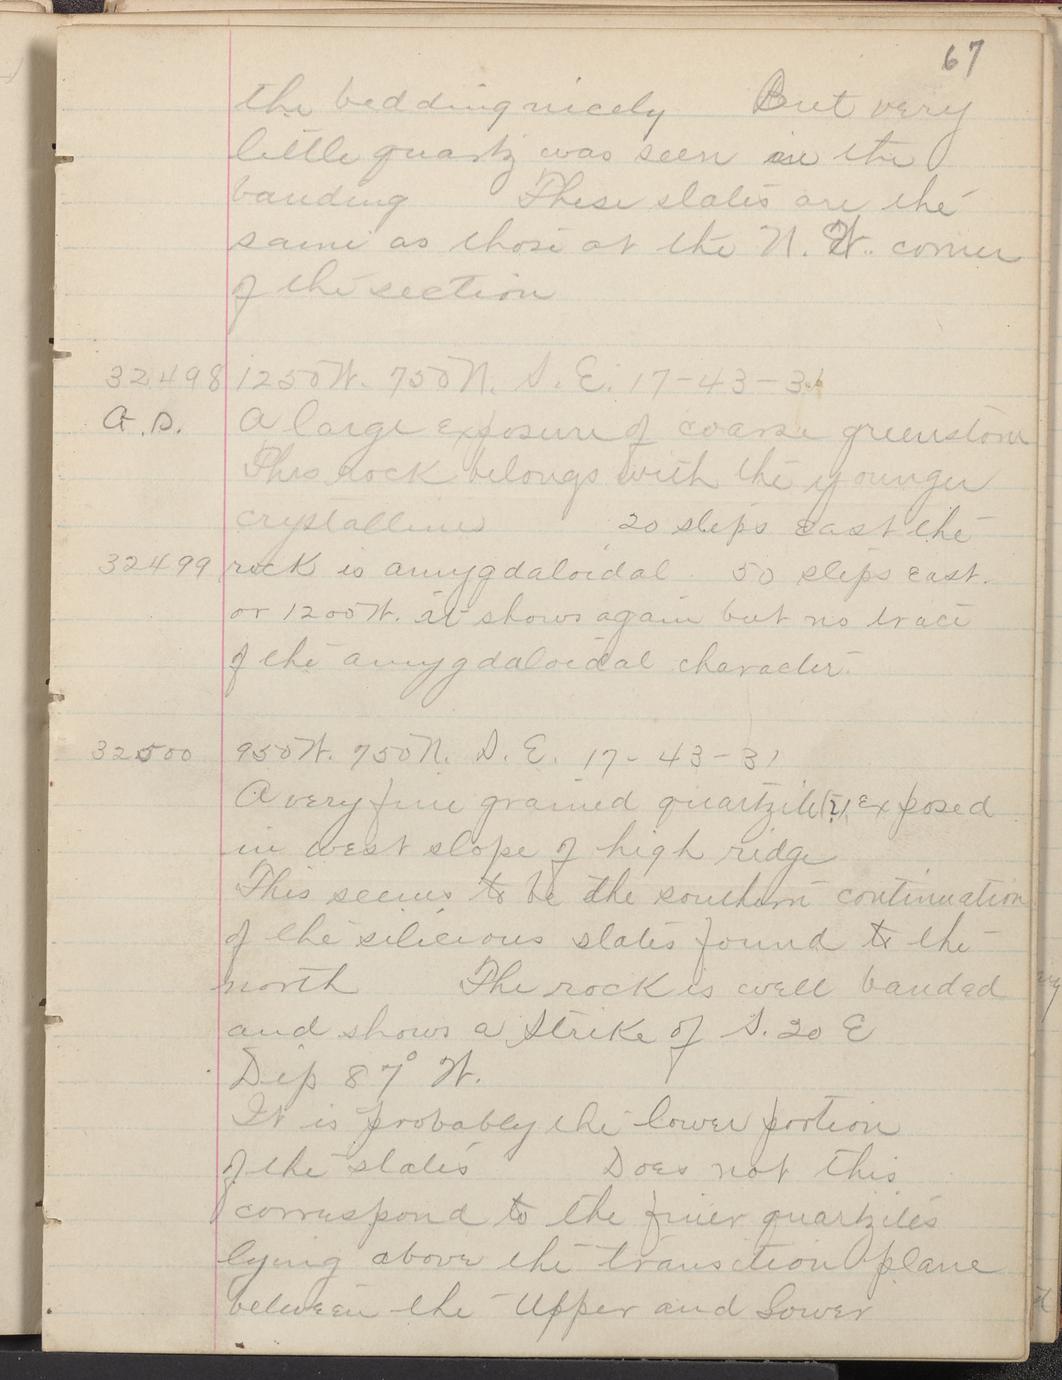 67
the bedding nicely But very
little quartz was seen in the
banding These slates are the
same as those at the N. W. corner
of the section
32498 1250 W. 750 N. S. E. 17-43-31
A.S. A large exposure of coarse greenstone
This rock belongs with the younger
crystallines 20 steps east the
32499 rock is amygdaloidal. 50 steps east.
or 1200 W. it shows again but no trace
of the amygdaloidal character.
32500 950 W. 750 N. S. E. 17-43-31
A very fine grained quartzite(?) exposed
in west slope of high ridge
This seems to be the southern continuation
of the silicious slates found to the
north The rock is well banded
and shows a Strike of S. 20 E
Dip 87° W.
It is probably the lower portion
of the slates Does not this
correspond to the finer quartzites
lying above the transition plane
between the Upper and Lower